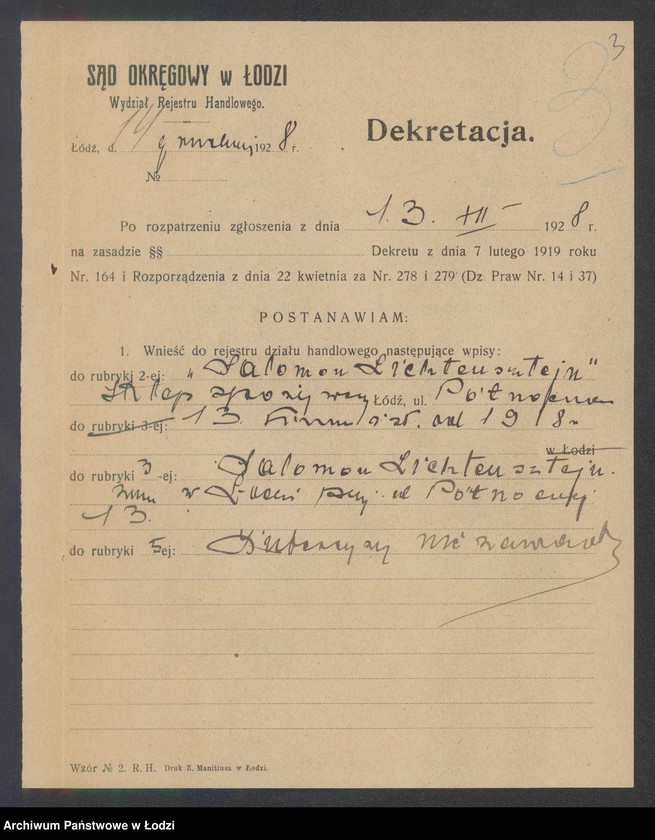 3
SĄD OKRĘGOWY w ŁODZI
Wydział Rejestru Handlowego.
Dekretacja.
Łódź, d. 14 grudnia 1928 r.
№
Po rozpatrzeniu zgłoszenia z dnia 13. XII 1928 r.
na zasadzie §§ Dekretu z dnia 7 lutego 1919 roku
Nr. 164 i Rozporządzenia z dnia 22 kwietnia za Nr. 278 i 279 (Dz. Praw Nr. 14 i 37)
POSTANAWIAM:
1. Wnieść do rejestru działu handlowego następujące wpisy:
do rubryki 2-ej: „Salomon Lichtensztejn”
Sklep spożywczy Łódź, ul. Północna
do rubryki 3-ej: 13. Firma istn. od 1918 r.
w Łodzi
do rubryki 3-ej: Salomon Lichtensztejn.
zam w Łodzi przy ul Północnej
13.
do rubryki 5ej: Intercyzy nie zawarł
Wzór № 2. R. H. Druk Z. Manitiusa w Łodzi.
Archiwum Państwowe w Łodzi